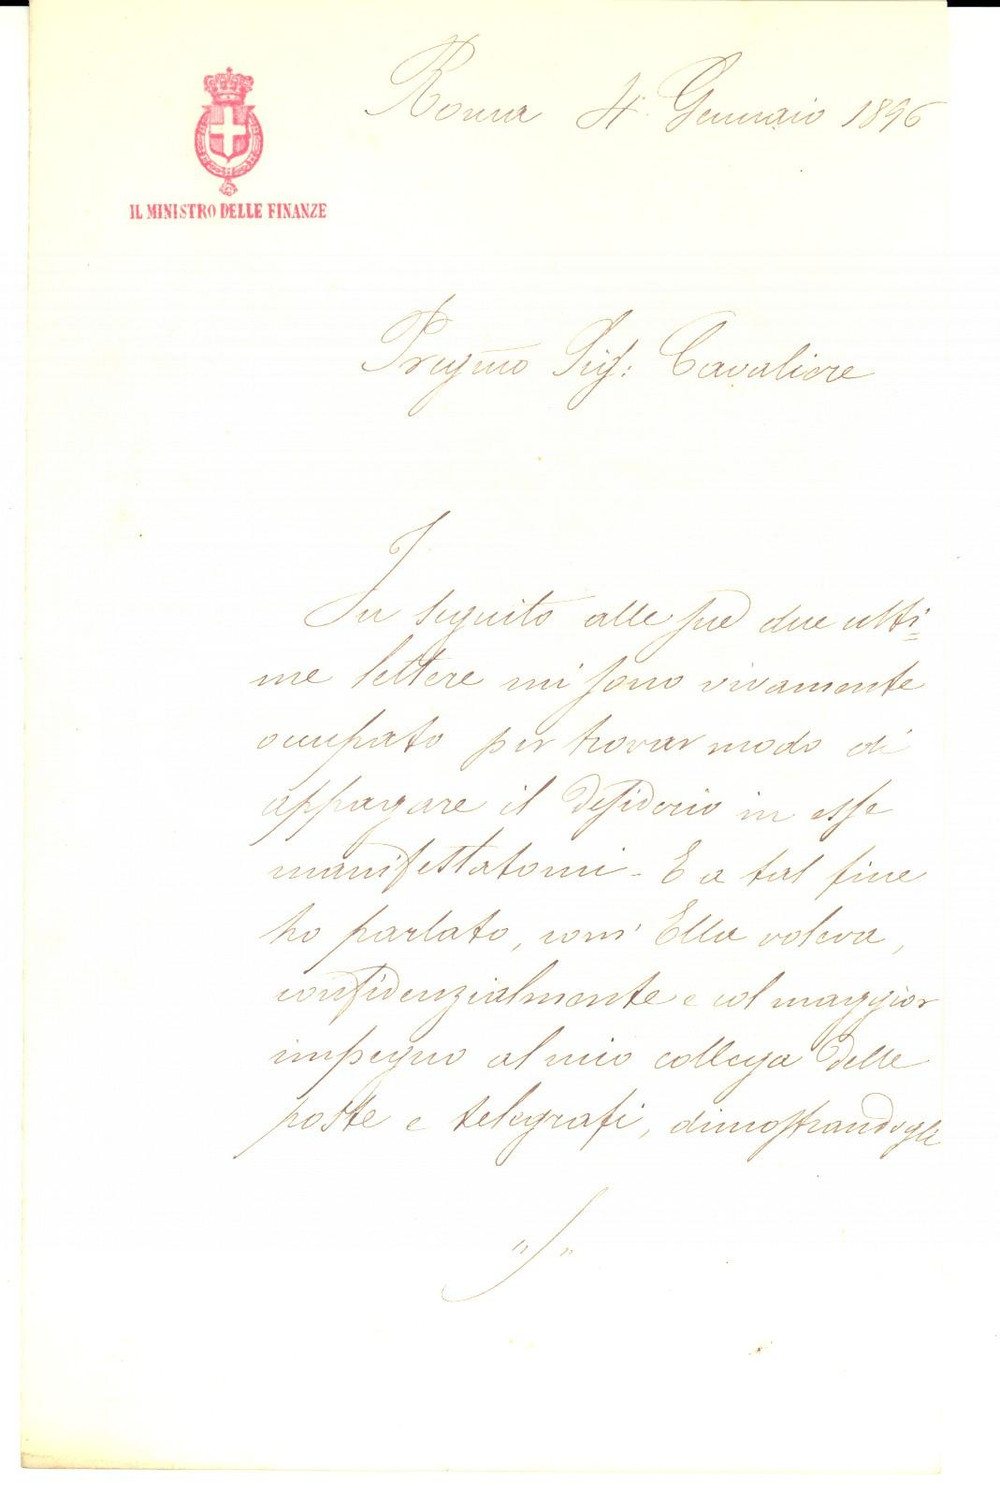 Roma 4 Gennaio 1896
IL MINISTRO DELLE FINANZE
Pregmo Sigr: Cavaliere
In seguito alle sue due ulti=
me lettere mi sono vivamente
occupato per trovar modo di
appagare il desiderio in esse
manifestatomi - E a tal fine
ho parlato, com' Ella voleva,
confidenzialmente e col maggior
impegno al mio collega delle
poste e telegrafi, dimostrandogli
"/"